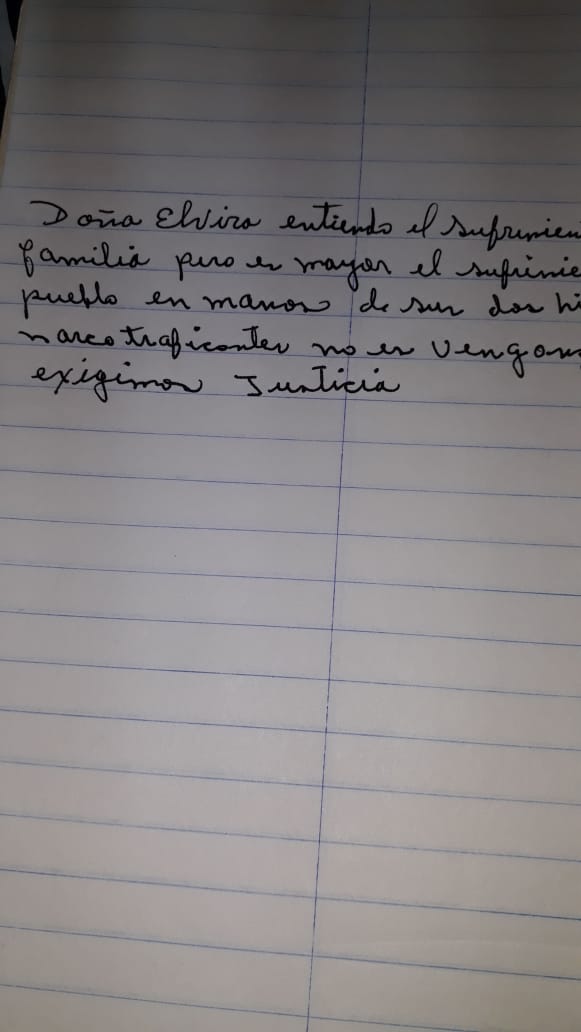 Doña Elvira entiendo el sufrimien
familia pero es mayor el sufrimie
pueblo en manos de sus dos hi
narcotraficantes no es venganz
exigimos Justicia